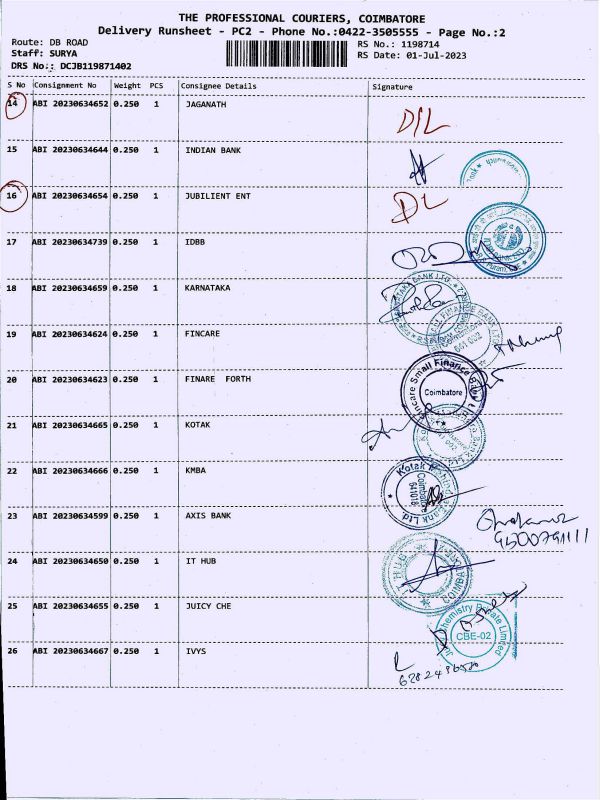 THE PROFESSIONAL COURIERS, COIMBATORE
Delivery Runsheet - PC2 - Phone No.:0422-3505555 - Page No.:2
Route: DB ROAD
Staff: SURYA
DRS No.: DCJB119871402
RS No.: 1198714
RS Date: 01-Jul-2023
S No Consignment No Weight PCS Consignee Details Signature
14 ABI 20230634652 0.250 1 JAGANATH
DL
15 ABI 20230634644 0.250 1 INDIAN BANK
16 ABI 20230634654 0.250 1 JUBILIENT ENT DL
17 ABI 20230634739 0.250 1 IDBB
18 ABI 20230634659 0.250 1 KARNATAKA
19 ABI 20230634624 0.250 1 FINCARE
20 ABI 20230634623 0.250 1 FINARE FORTH
Fincare Small Finance Bank
Coimbatore
21 ABI 20230634665 0.250 1 KOTAK
22 ABI 20230634666 0.250 1 KMBA
Kotak Mahindra Bank Ltd.
Coimbatore
641018
23 ABI 20230634599 0.250 1 AXIS BANK
24 ABI 20230634650 0.250 1 IT HUB
HUB
COIMBA
25 ABI 20230634655 0.250 1 JUICY CHE
Chemistry Private Limited
CBE-02
26 ABI 20230634667 0.250 1 IVYS